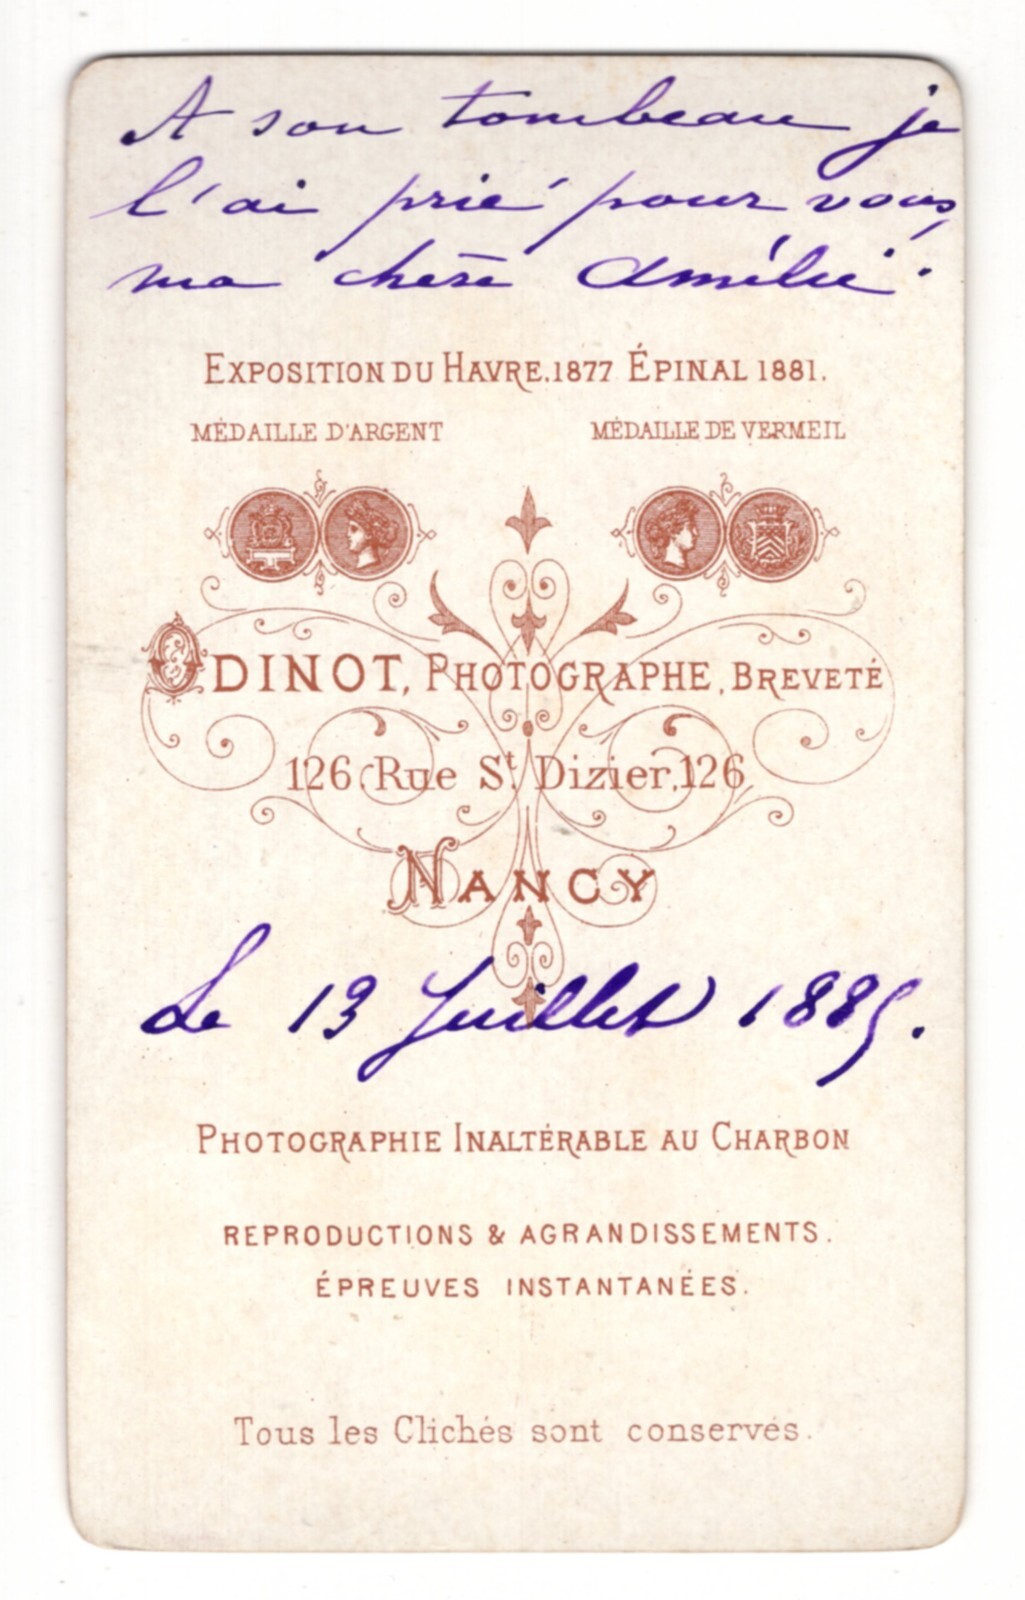 A son tombeau je
l'ai prié pour vous,
ma chère Amélie.
EXPOSITION DU HAVRE.1877 ÉPINAL 1881.
MÉDAILLE D'ARGENT MÉDAILLE DE VERMEIL
ODINOT, PHOTOGRAPHE, BREVETÉ
126, Rue St Dizier, 126
NANCY
Le 13 Juillet 1885.
PHOTOGRAPHIE INALTÉRABLE AU CHARBON
REPRODUCTIONS & AGRANDISSEMENTS.
ÉPREUVES INSTANTANÉES.
Tous les Clichés sont conservés.